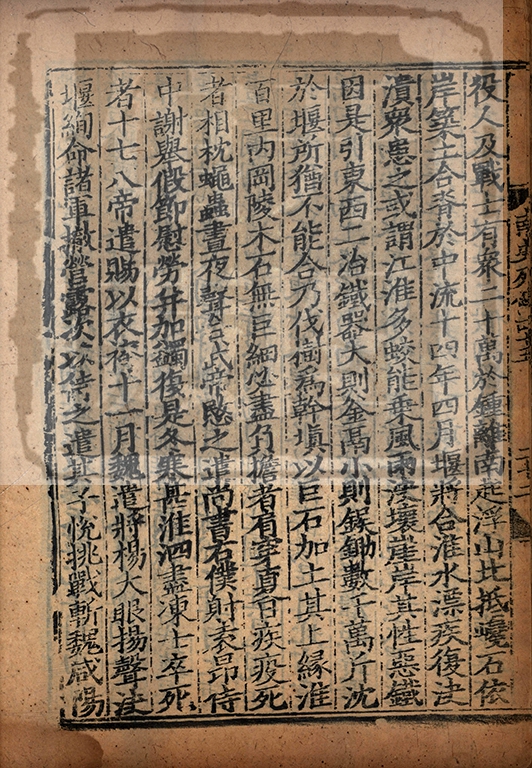 役人及戰士有衆二十萬於鍾離南起浮山北抵巉石依
岸築土合脊於中流十四年四月堰將合淮水漂疾復决
潰衆患之或謂江淮多蛟能乗風雨决壞崖岸其性惡鐵
因是引東西二冶鐵器大則釜鬲小則鋘鋤數千萬斤沈
於堰所猶不能合乃伐樹爲幹塡以巨石加土其上緣淮
百里内岡陵木石無巨細必盡負擔者肩穿夏日疾疫死
者相枕蠅蟲晝夜聲合武帝愍之遣尚書右僕射袁昂侍
中謝舉假節慰勞并加蠲復是冬寒甚淮泗盡凍士卒死
者十七八帝遣賜以衣袴十一月魏遣將楊大眼揚聲决
堰絢命諸軍撤營露次以待之遣其子悅挑戰斬魏咸陽